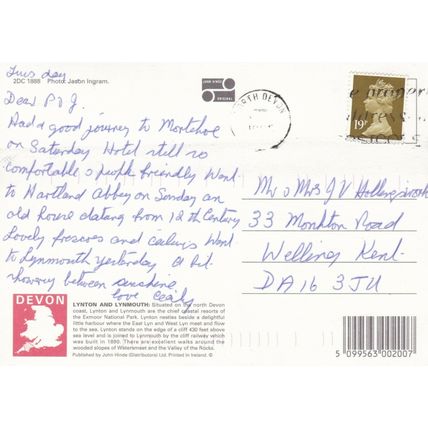 Tuesday
2DC 1888 Photo: Jason Ingram.
Dear P & J.
Had a good journey to Mortehoe
on Saturday Hotel still so
comfortable & people friendly Went
to Hartland Abbey on Sunday an
old house dating from 12th Century
Lovely frescoes and ceilings Went
to Lynmouth yesterday A bit
showery between sunshine
love Cecily
DEVON
LYNTON AND LYNMOUTH: Situated on the north Devon
coast, Lynton and Lynmouth are the chief coastal resorts of
the Exmoor National Park. Lynton nestles beside a delightful
little harbour where the East Lyn and West Lyn meet and flow
to the sea. Lynton stands on the edge of a cliff 430 feet above
sea level and is joined to Lynmouth by the cliff railway which
was built in 1890. There are excellent walks around the
wooded slopes of Watersmeet and the Valley of the Rocks.
Published by John Hinde (Distributors) Ltd. Printed in Ireland. ©
ORIGINAL
NORTH DEVON
19
Mr & Mrs J V
33 Monkton Road
Welling Kent.
DA16 3JU
5 099563 002007